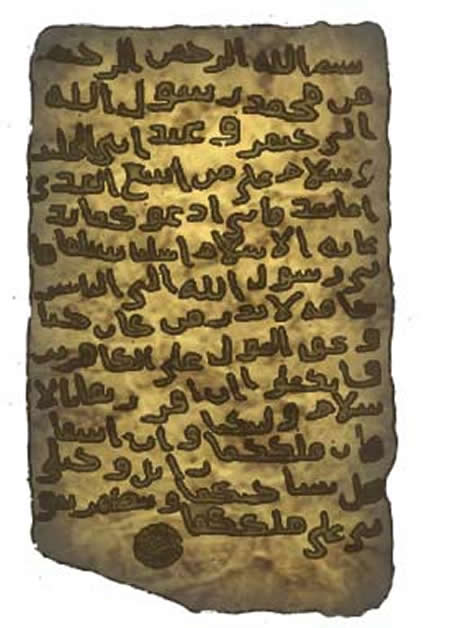 بسم الله الرحمن الرحيم
من محمد رسول الله
الى جيفر و عبد ابني الجلند
ى سلام على من اتبع الهدى
اما بعد فاني ادعو كما بد
عايه الاسلام اسلما تسلما فا
ني رسول الله الى الناس
كافه لانذر من كان حيا
و يحق القول على الكافرين
فانكما ان اقررتما بالا
سلام وليتكما وان ابيتما
فان ملككما زايل و خيلي
تحل بساحتكما و تظهر نبو
تي على ملككما